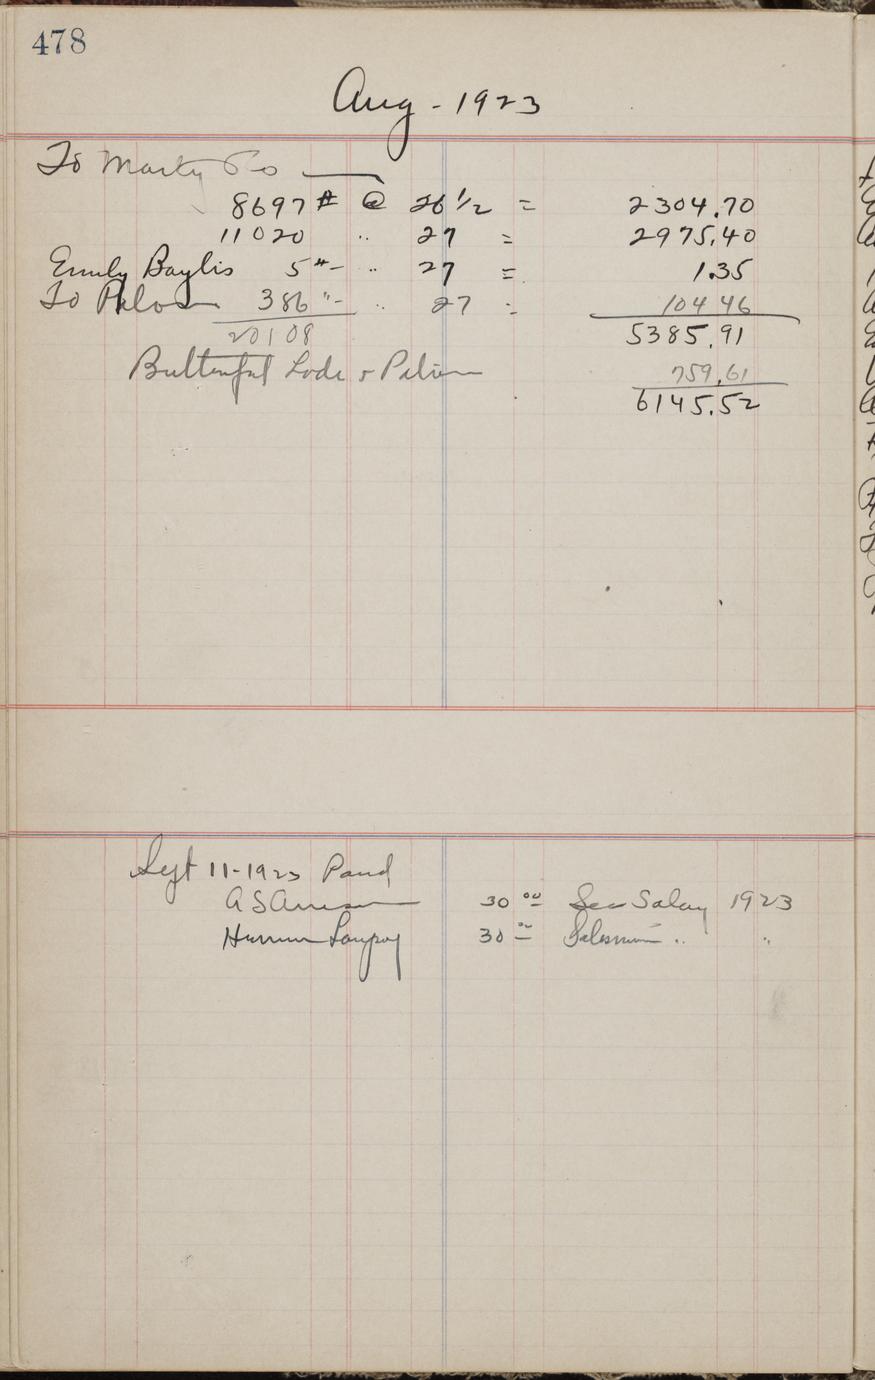 478
Aug - 1923
To Marty Co
8697 # @ 26 1/2 = 2304.70
11020 " 27 = 2975.40
Emily Baylis 5 #- " 27 = 1.35
To 386 "- " 27 = 104 46
20108 5385.91
759.61
6145.52
Sept 11-1923 Paid
A S 30 00 Sec Salary 1923
30 00 Salesman " "